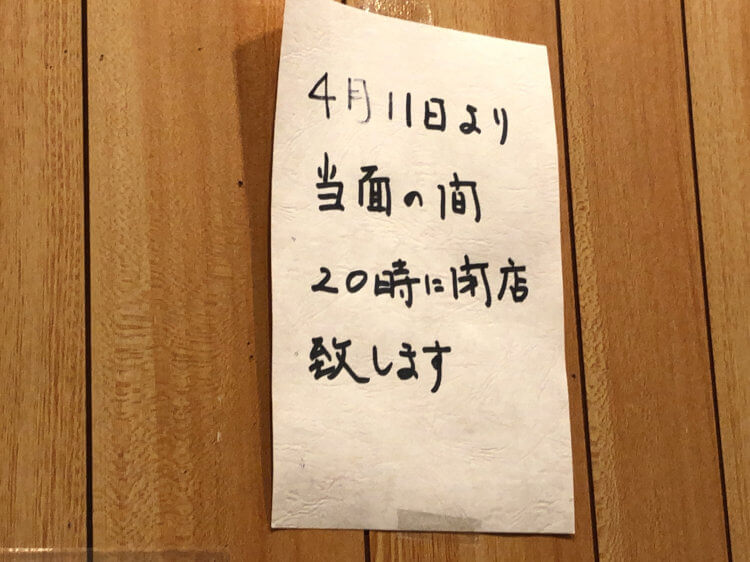 4月11日より
当面の間
20時に閉店
致します